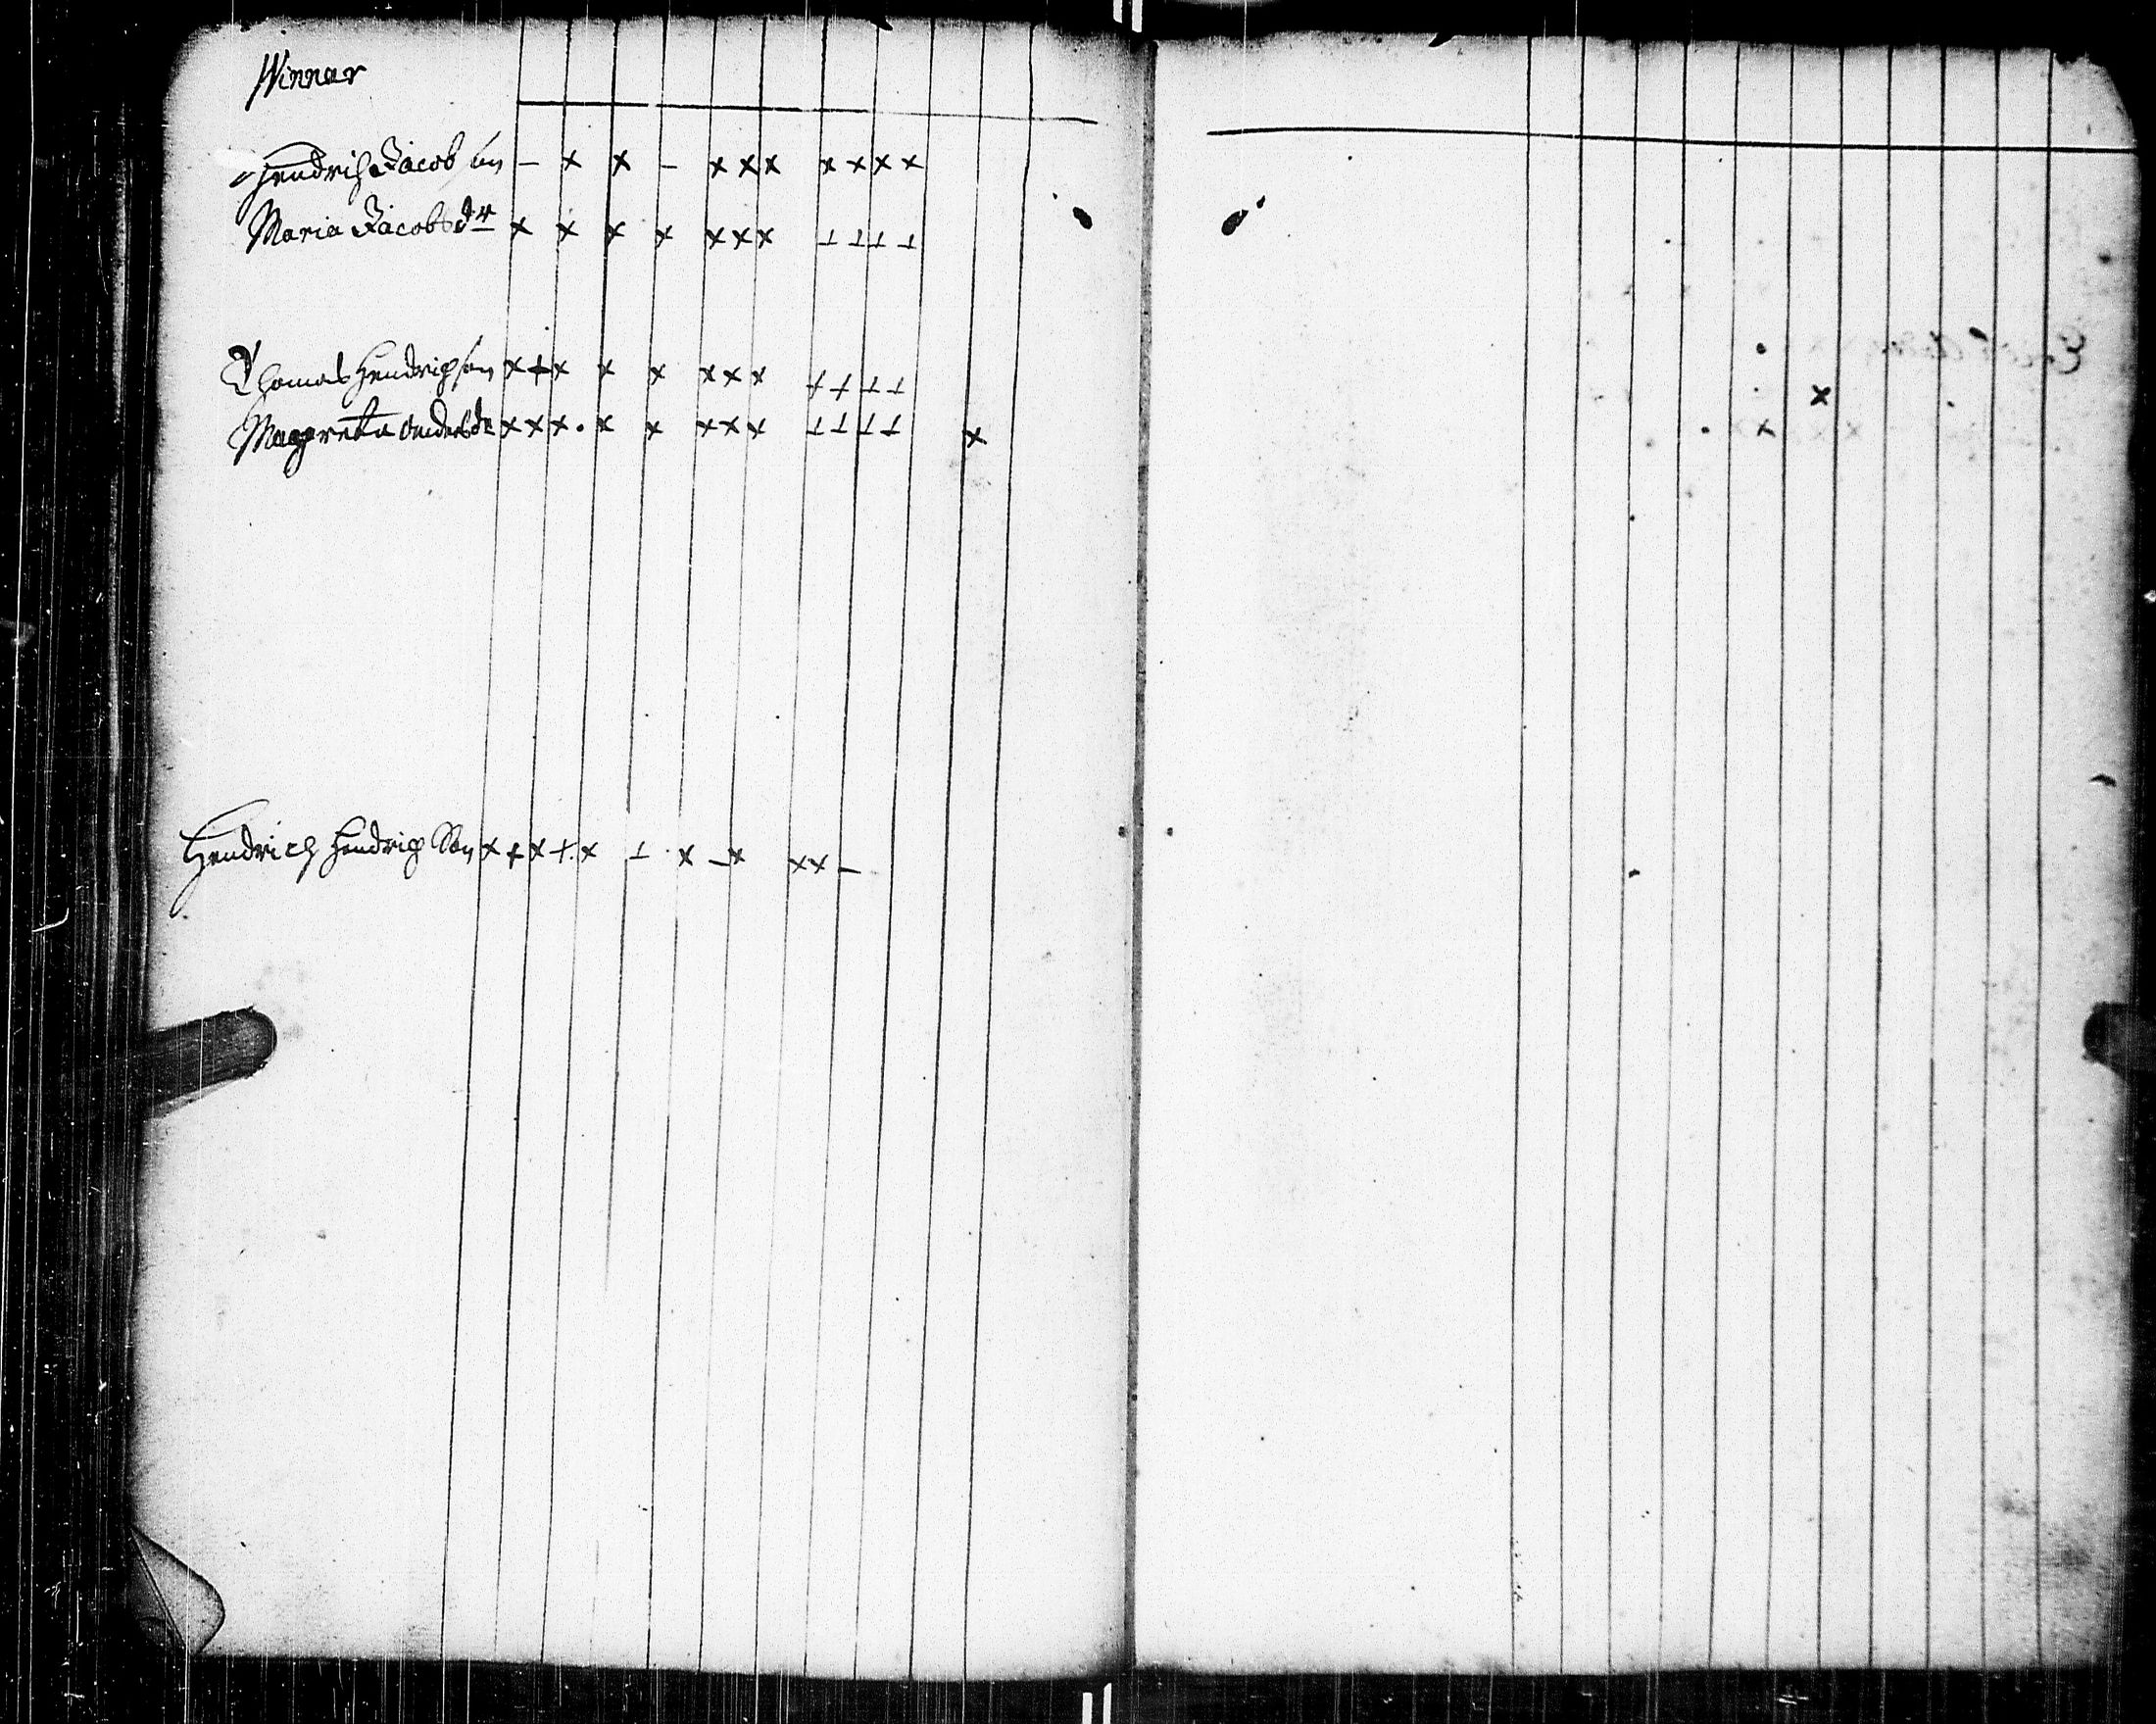 Winnar
Hendrich Jacobson – x x – x x x x x x x
Maria Jacobsdr x x x x x x x ⊥ ⊥ ⊥ ⊥
Thomas Hendrichson x + x x x x x x + + ⊥ ⊥
Magreta Andersdr x x x . x x x x x ⊥ ⊥ ⊥ ⊥ x
Hendrich Hendrich Son x + x + . x ⊥ . x – x x x –